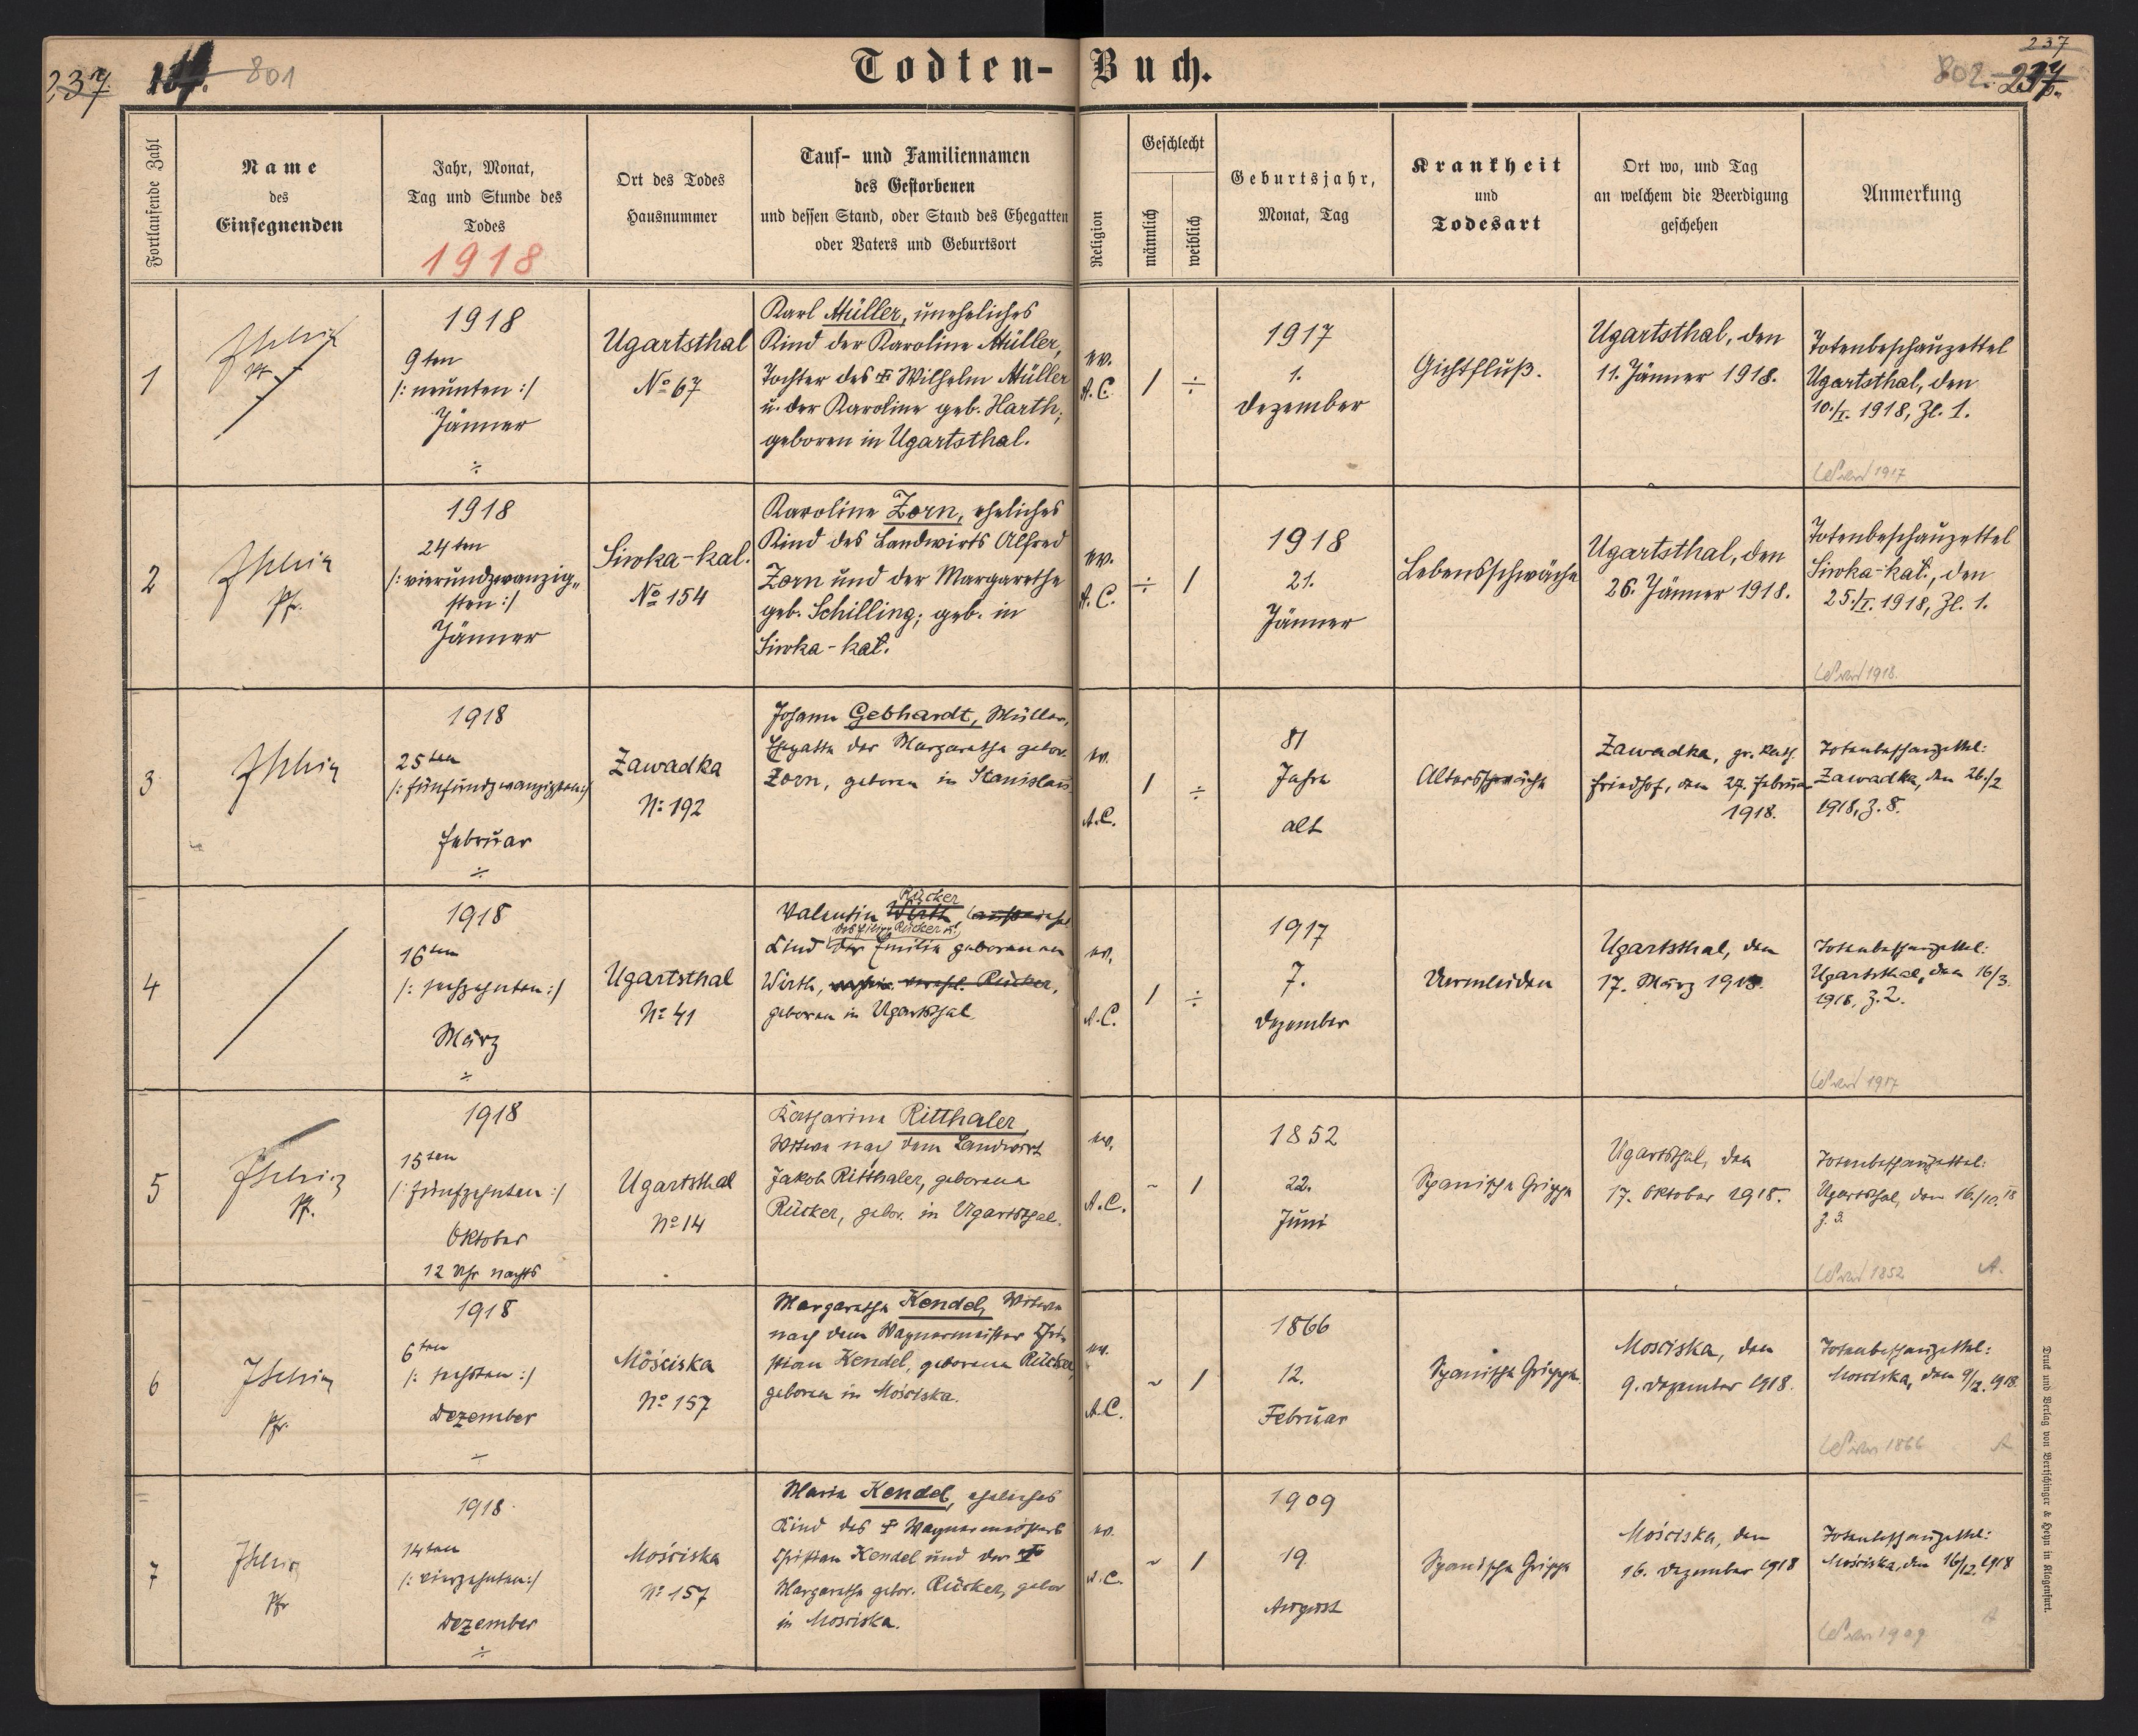 Todten- Buch.
237. 801
237
802. 237.
Fortlaufende Zahl
Name
des
Einsegnenden
Jahr, Monat,
Tag und Stunde des
Todes
1918
Ort des Todes
Hausnummer
Tauf- und Familiennamen
des Gestorbenen
und dessen Stand, oder Stand des Ehegatten
oder Vaters und Geburtsort
Religion
Geschlecht
männlich
weiblich
Geburtsjahr,
Monat, Tag
Krankheit
und
Todesart
Ort wo, und Tag
an welchem die Beerdigung
geschehen
Anmerkung
1
1918
9ten
/: neunten :/
Jänner
÷
Ugartsthal
No 67
Karl Müller, uneheliches
Kind der Karoline Müller,
Tochter des ✝ Wilhelm Müller
u. der Karoline geb. Harth,
geboren in Ugartsthal.
ev.
A. C.
/ ÷
1917
1.
Dezember
Gichtfluß.
Ugartsthal, den
11. Jänner 1918.
Totenbeschauzettel
Ugartsthal, den
10./I. 1918, Zl. 1.
1917
2
Pfr.
1918
24ten
/: vierundzwanzig„
sten :/
Jänner
Siwka-kal.
No 154
Karoline Zorn, eheliches
Kind des Landwirts Alfred
Zorn und der Margarethe
geb. Schilling; geb. in
Siwka-kał.
ev.
A. C.
÷ /
1918
21.
Jänner
Lebensschwäche
Ugartsthal, den
26. Jänner 1918.
Totenbeschauzettel
Siwka-kał., den
25./I. 1918, Zl. 1.
1918.
3
1918
25ten
/: fünfundzwanzigsten :/
Februar
÷
Zawadka
No 192
Johann Gebhardt, Müller,
Ehegatte der Margarethe gebor.
Zorn, geboren in Stanislau
ev.
A. C.
/ ÷
81
Jahre
alt
Altersschwäche
Zawadka, gr. kath.
Friedhof, den 27. Februar
1918.
Totenbeschauzettel:
Zawadka, den 26./2
1918, Z. 8.
4
1918
16ten
/: sechzehnten :/
März
÷
Ugartsthal
No 41
Rücker
Valentin Wirth,
Rücker u.
Kind der Emilie geborenen
Wirth, Rücker,
geboren in Ugartsthal.
ev.
A. C.
/ ÷
1917
7.
Dezember
Ugartsthal, den
17. März 1918.
Totenbeschauzettel:
Ugartsthal, den 16/3.
1918, Z. 2.
1917
5
Pfr.
1918
15ten
/: fünfzehnten :/
Oktober
12 Uhr nachts
Ugartsthal
No 14
Katharina Ritthaler,
Witwe nach dem Landwirt
Jakob Ritthaler, geborene
Rücker, gebor. in Ugartsthal.
ev.
A. C.
~ /
1852
22.
Juni
Spanische Grippe
Ugartsthal, den
17. Oktober 1918.
Totenbeschauzettel:
Ugartsthal, den 16./10. 18
Z. 3.
1852 A.
6
Pfr.
1918
6ten
/: sechsten :/
Dezember
÷
Mościska
No 157
Margarethe Kendel, Witwe
nach dem Wagnermeister Chri-
stian Kendel, geborene Rücker,
geboren in Mościska.
ev.
A. C.
~ /
1866
12.
Februar
Spanische Grippe.
Mosciska, den
9. Dezember 1918.
Totenbeschauzettel:
Mosciska, den 9/12. 918.
1866 A
7
Pfr
1918
14ten
/: vierzehnten :/
Dezember
÷
Mościska
No 157
Maria Kendel, eheliches
Kind des ✝ Wagnermeisters
Christian Kendel und der ✝
Margarethe gebor. Rücker, gebor
in Mosciska.
ev.
A. C.
~ /
1909
19
August
Spanische Grippe
Mościska, den
16. Dezember 1918
Totenbeschauzettel:
Mościska, den 16/12. 1918
1909 A
Druck und Verlag von Bertschinger & Heyn in Klagenfurt.